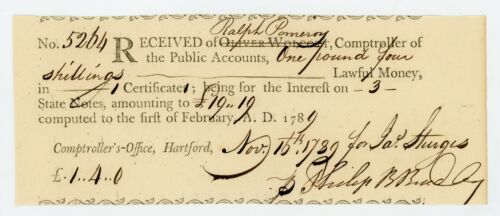 Ralph Pomeroy
No. 5204 RECEIVED of OLIVER WOLCOTT, Comptroller of
the Public Accounts, One pound four
shillings Lawful Money,
in 1 Certificate 1; being for the Interest on - 3 -
State Notes, amounting to £19..19
computed to the first of February, A. D. 1789
Comptroller's-Office, Hartford, Nov. 16th 1789 for Jas. Sturges
£.1..4..0 Philip B